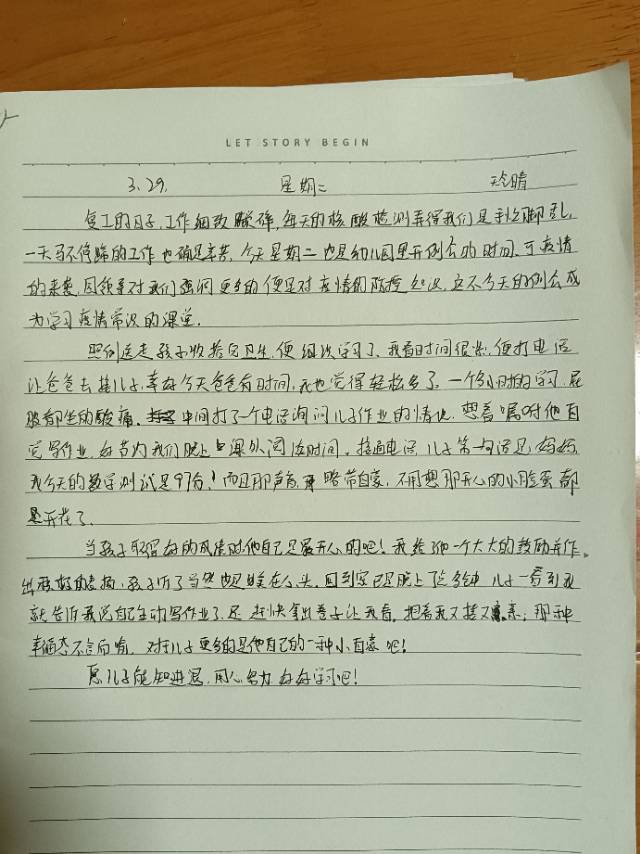 LET STORY BEGIN
3.29. 星期二 天气晴
复工的日子,工作细致琐碎,每天的核酸检测弄得我们是手忙脚乱,
一天马不停蹄的工作也确是辛苦,今天星期二也是幼儿园里开例会的时间,可疫情
的来袭,园领导对我们强调更多的便是对疫情的防控知识,这不今天的例会成
为学习疫情常识的课堂。
照例送走孩子收拾完卫生,便组织学习了,我看时间很紧,便打电话
让爸爸去接儿子,幸好今天爸爸有时间,我也觉得轻松多了,一个多小时的学习,屁
股都坐的酸痛,中间打了一个电话询问儿子作业的情况,想着嘱咐他自
觉写作业,好节约我们晚上课外阅读时间。接通电话,儿子第一句话是,妈妈,
我今天的数学测试是97分!而且那声音略带自豪,不用想那开心的小脸蛋都
是开花了。
当孩子取得好的成绩时他自己是最开心的吧!我给了他一个大大的鼓励并作
出,孩子听了当然也是美在心头,回到家已是晚上了,儿子一看到我
就告诉我说自己主动写作业了,还赶快拿出卷子让我看,抱着我又搂又亲,那种
幸福不言而喻,对于儿子更多的是他自己的一种小自豪吧!
愿儿子能知进退,用心努力好好学习吧!